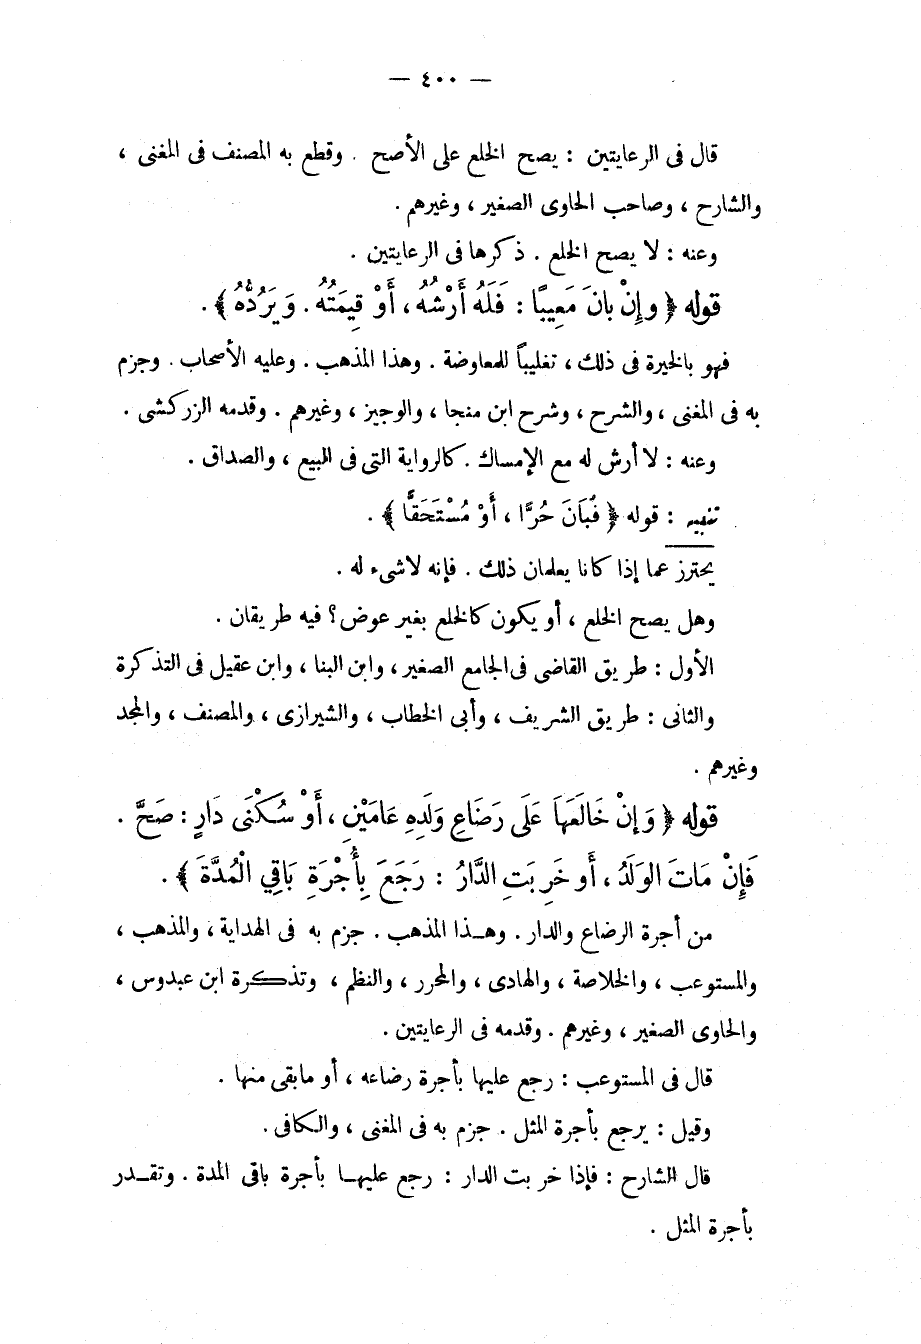 — ٤٠٠ —
قال فى الرعايتين : يصح الخلع على الأصح . وقطع به المصنف فى المغنى ،
والشارح ، وصاحب الحاوى الصغير ، وغيرهم .
وعنه : لا يصح الخلع . ذكرها فى الرعايتين .
قوله ﴿ وإِنْ بانَ مَعِيبًا : فَلَهُ أَرْشُهُ ، أَوْ قِيمَتُهُ . وَيَرُدُّهُ ﴾ .
فهو بالخيرة فى ذلك ، تغليباً للمعاوضة . وهذا المذهب . وعليه الأصحاب . وجزم
به فى المغنى ، والشرح ، وشرح ابن منجا ، والوجيز ، وغيرهم . وقدمه الزركشى .
وعنه : لا أرش له مع الإمساك . كالرواية التى فى البيع ، والصداق .
تنبيه : قوله ﴿ فَبَانَ حُرًّا ، أَوْ مُسْتَحَقًّا ﴾ .
يحترز عما إذا كانا يعلمان ذلك . فإنه لاشىء له .
وهل يصح الخلع ، أو يكون كالخلع بغير عوض ؟ فيه طريقان .
الأول : طريق القاضى فى الجامع الصغير ، وابن البنا ، وابن عقيل فى التذكرة
والثانى : طريق الشريف ، وأبى الخطاب ، والشيرازى ، والمصنف ، والمجد
وغيرهم .
قوله ﴿ وَإِنْ خَالَعَهَا عَلَى رَضَاعِ وَلَدِهِ عَامَيْنِ ، أَوْ سُكْنَى دَارٍ : صَحَّ .
فَإِنْ مَاتَ الوَلَدُ ، أَو خَرِبَتِ الدَّارُ : رَجَعَ بِأُجْرَةِ بَاقِي الْمُدَّةَ ﴾ .
من أجرة الرضاع والدار . وهـذا المذهب . جزم به فى الهداية ، والمذهب ،
والمستوعب ، والخلاصة ، والهادى ، والمحرر ، والنظم ، وتذكرة ابن عبدوس ،
والحاوى الصغير ، وغيرهم . وقدمه فى الرعايتين .
قال فى المستوعب : رجع عليها بأجرة رضاعه ، أو مابقى منها .
وقيل : يرجع بأجرة المثل . جزم به فى المغنى ، والكافى .
قال الشارح : فإذا خربت الدار : رجع عليهـا بأجرة باقى المدة . وتقـدر
بأجرة المثل .